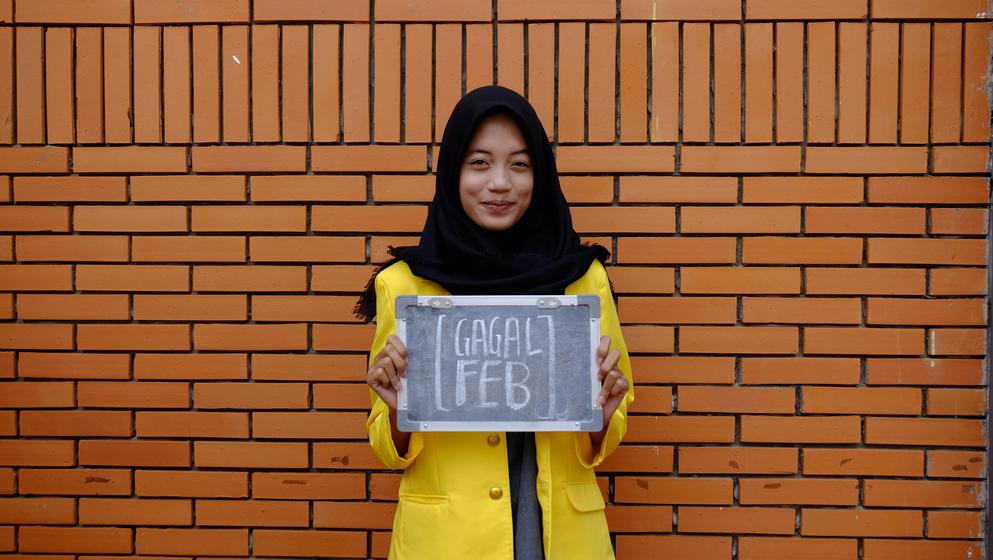 [GAGAL
FEB]